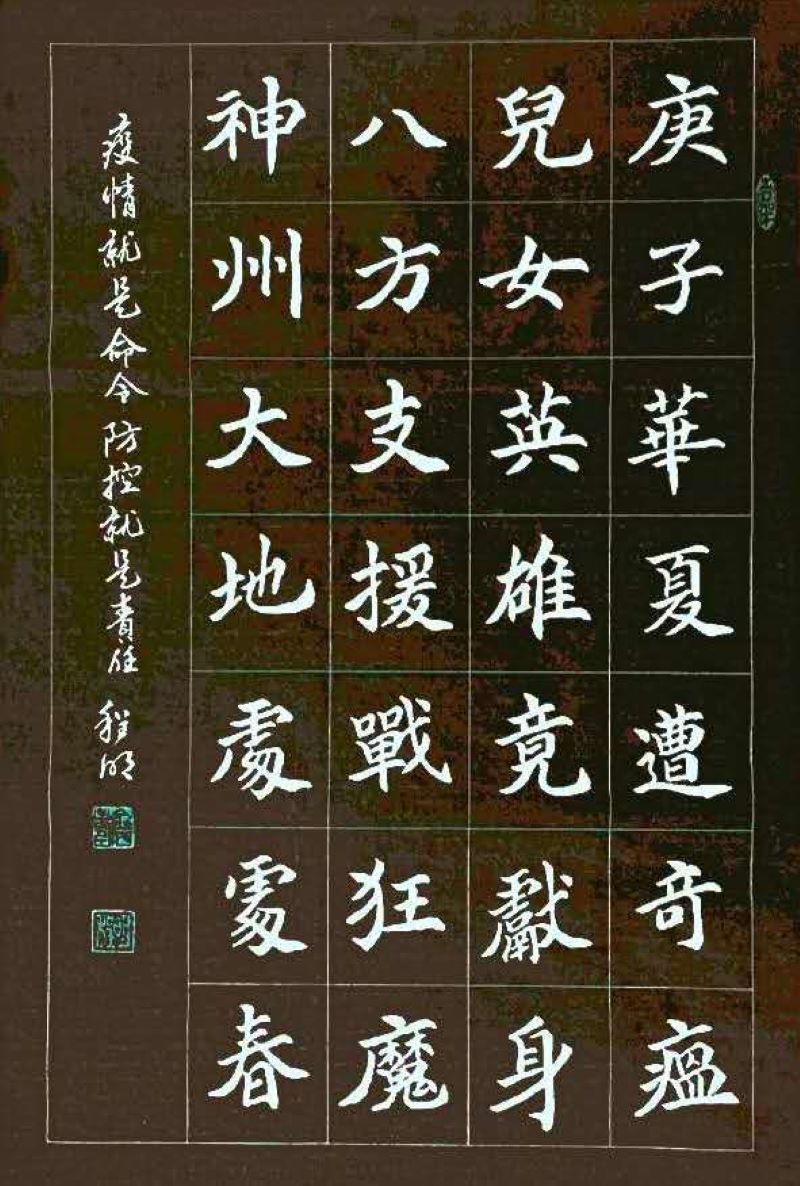 庚子華夏遭奇瘟
兒女英雄竟獻身
八方支援戰狂魔
神州大地處處春
疫情就是命令防控就是責任 程明